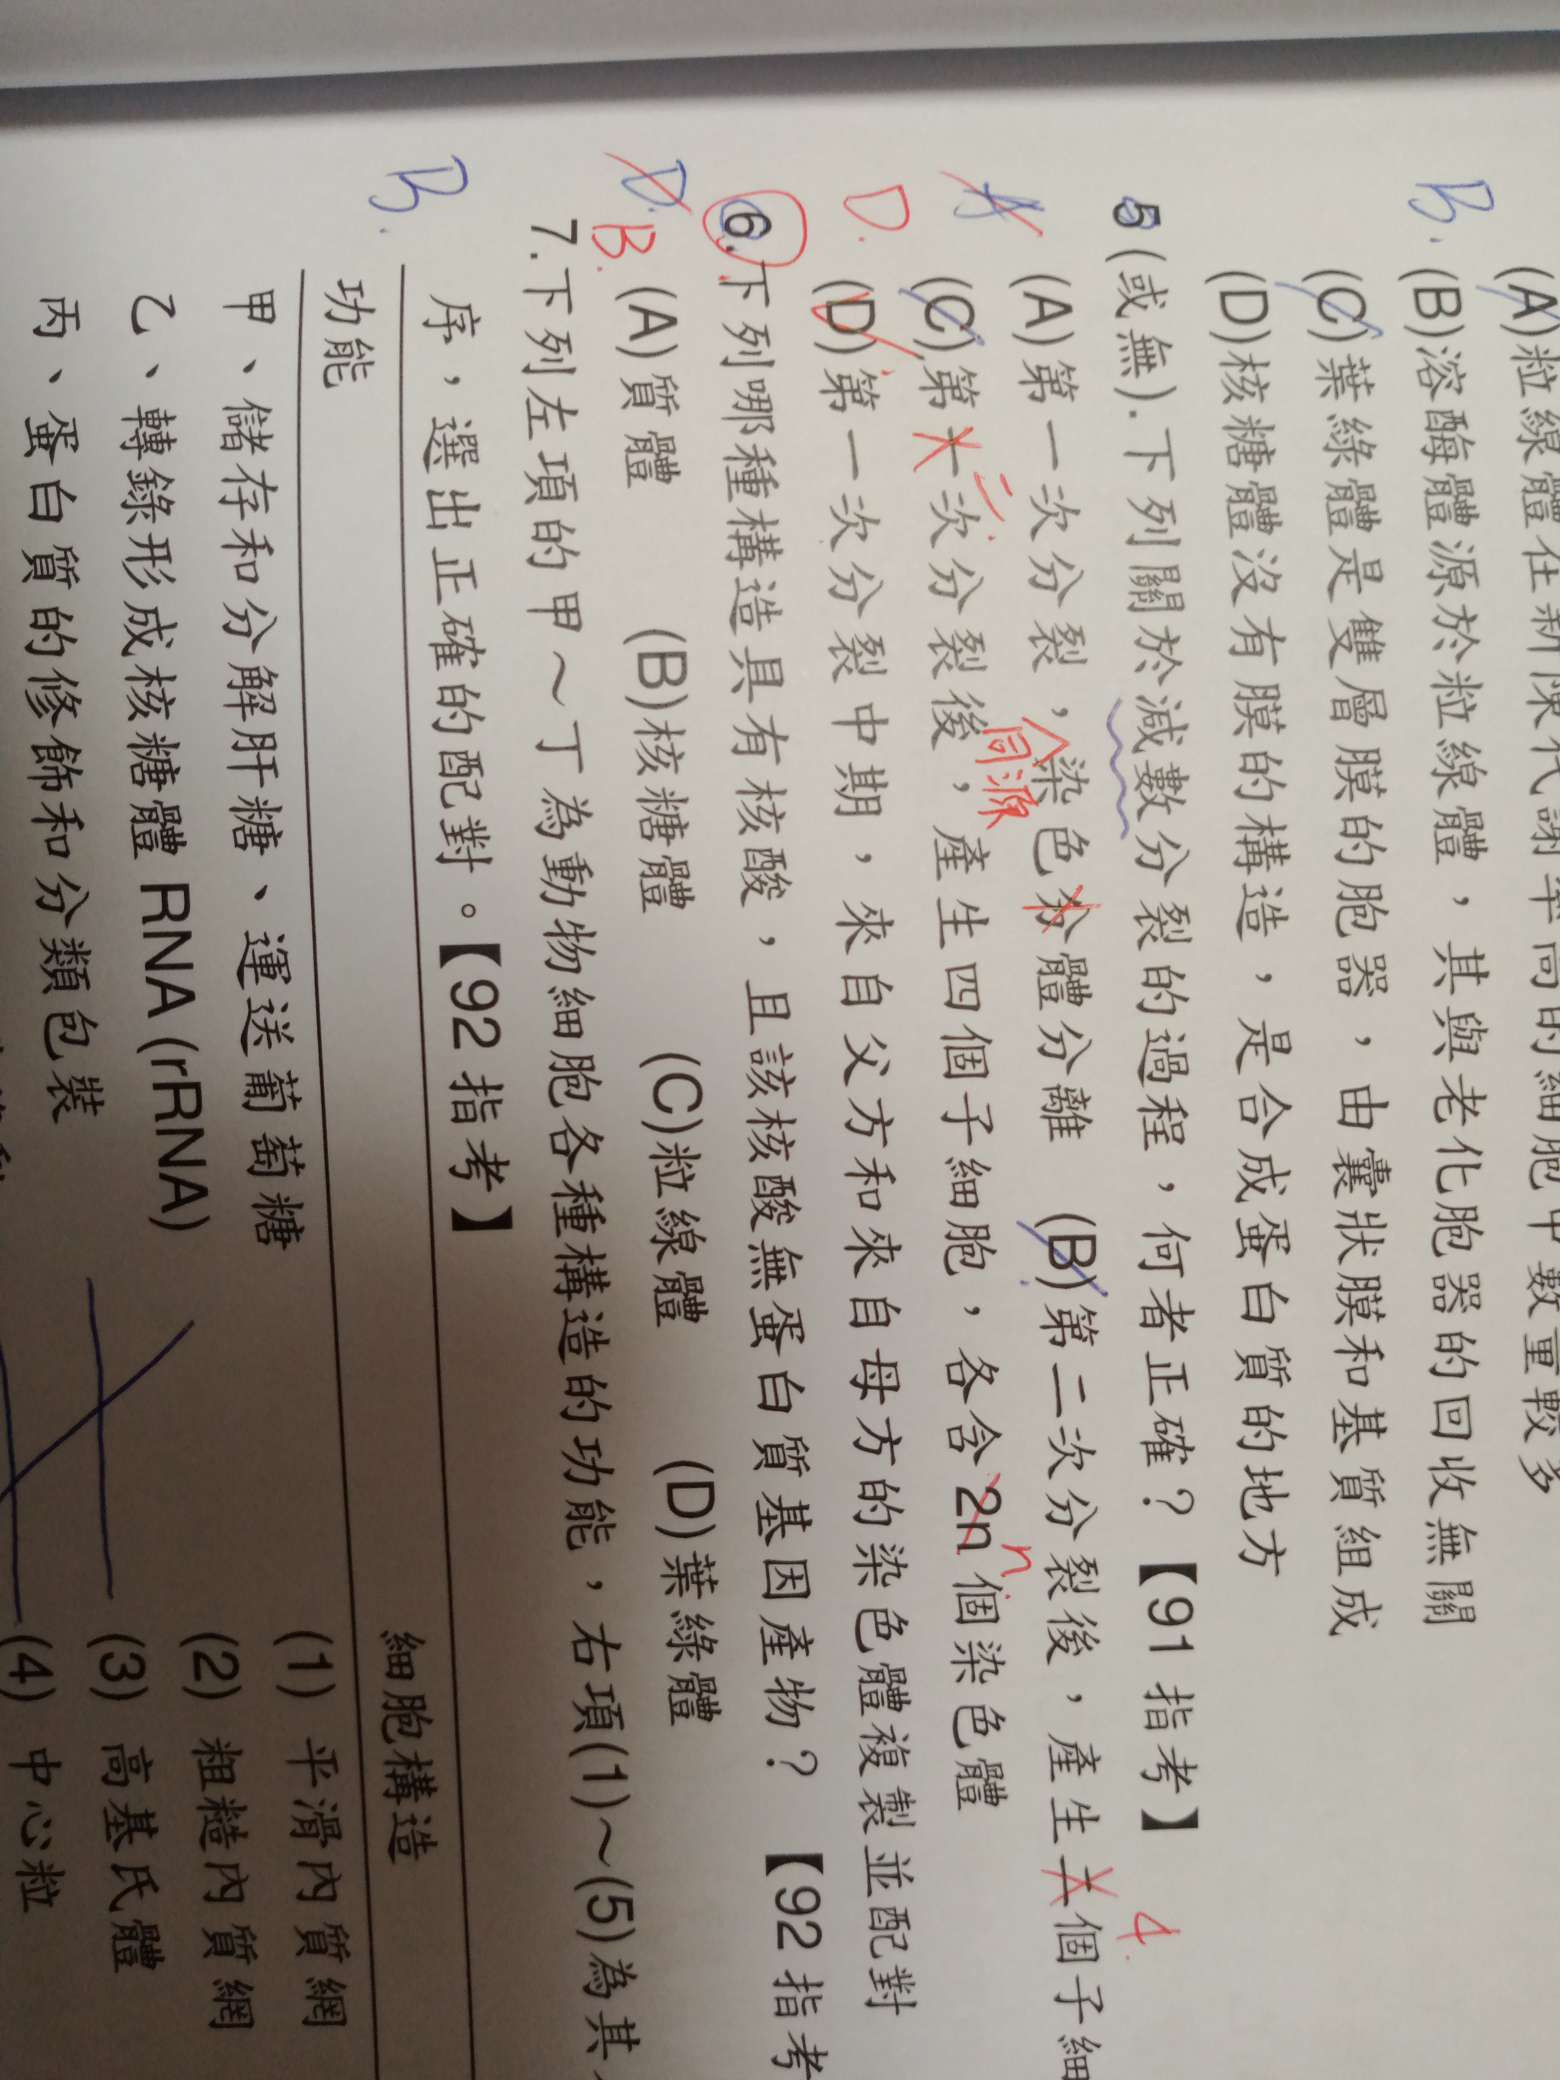 (A)粒線體在新陳代謝率高的細胞中數量較多
B.
(B)溶酶體源於粒線體，其與老化胞器的回收無關
(C)葉綠體是雙層膜的胞器，由囊狀膜和基質組成
(D)核糖體沒有膜的構造，是合成蛋白質的地方
5(或無).下列關於減數分裂的過程，何者正確？【91 指考】
A
D.
(A)第一次分裂，染色分體分離 (B)第二次分裂後，產生二個子細
同源
4
(C)第一次分裂後，產生四個子細胞，各含 2n 個染色體
二
n
(D)第一次分裂中期，來自父方和來自母方的染色體複製並配對
6.下列哪種構造具有核酸，且該核酸無蛋白質基因產物？【92 指考
D.
B.
(A)質體 (B)核糖體 (C)粒線體 (D)葉綠體
7.下列左項的甲～丁為動物細胞各種構造的功能，右項(1)～(5)為其
B.
序，選出正確的配對。【92 指考】
功能 細胞構造
甲、儲存和分解肝糖、運送葡萄糖 (1) 平滑內質網
乙、轉錄形成核糖體 RNA (rRNA) (2) 粗糙內質網
丙、蛋白質的修飾和分類包裝 (3) 高基氏體
(4) 中心粒